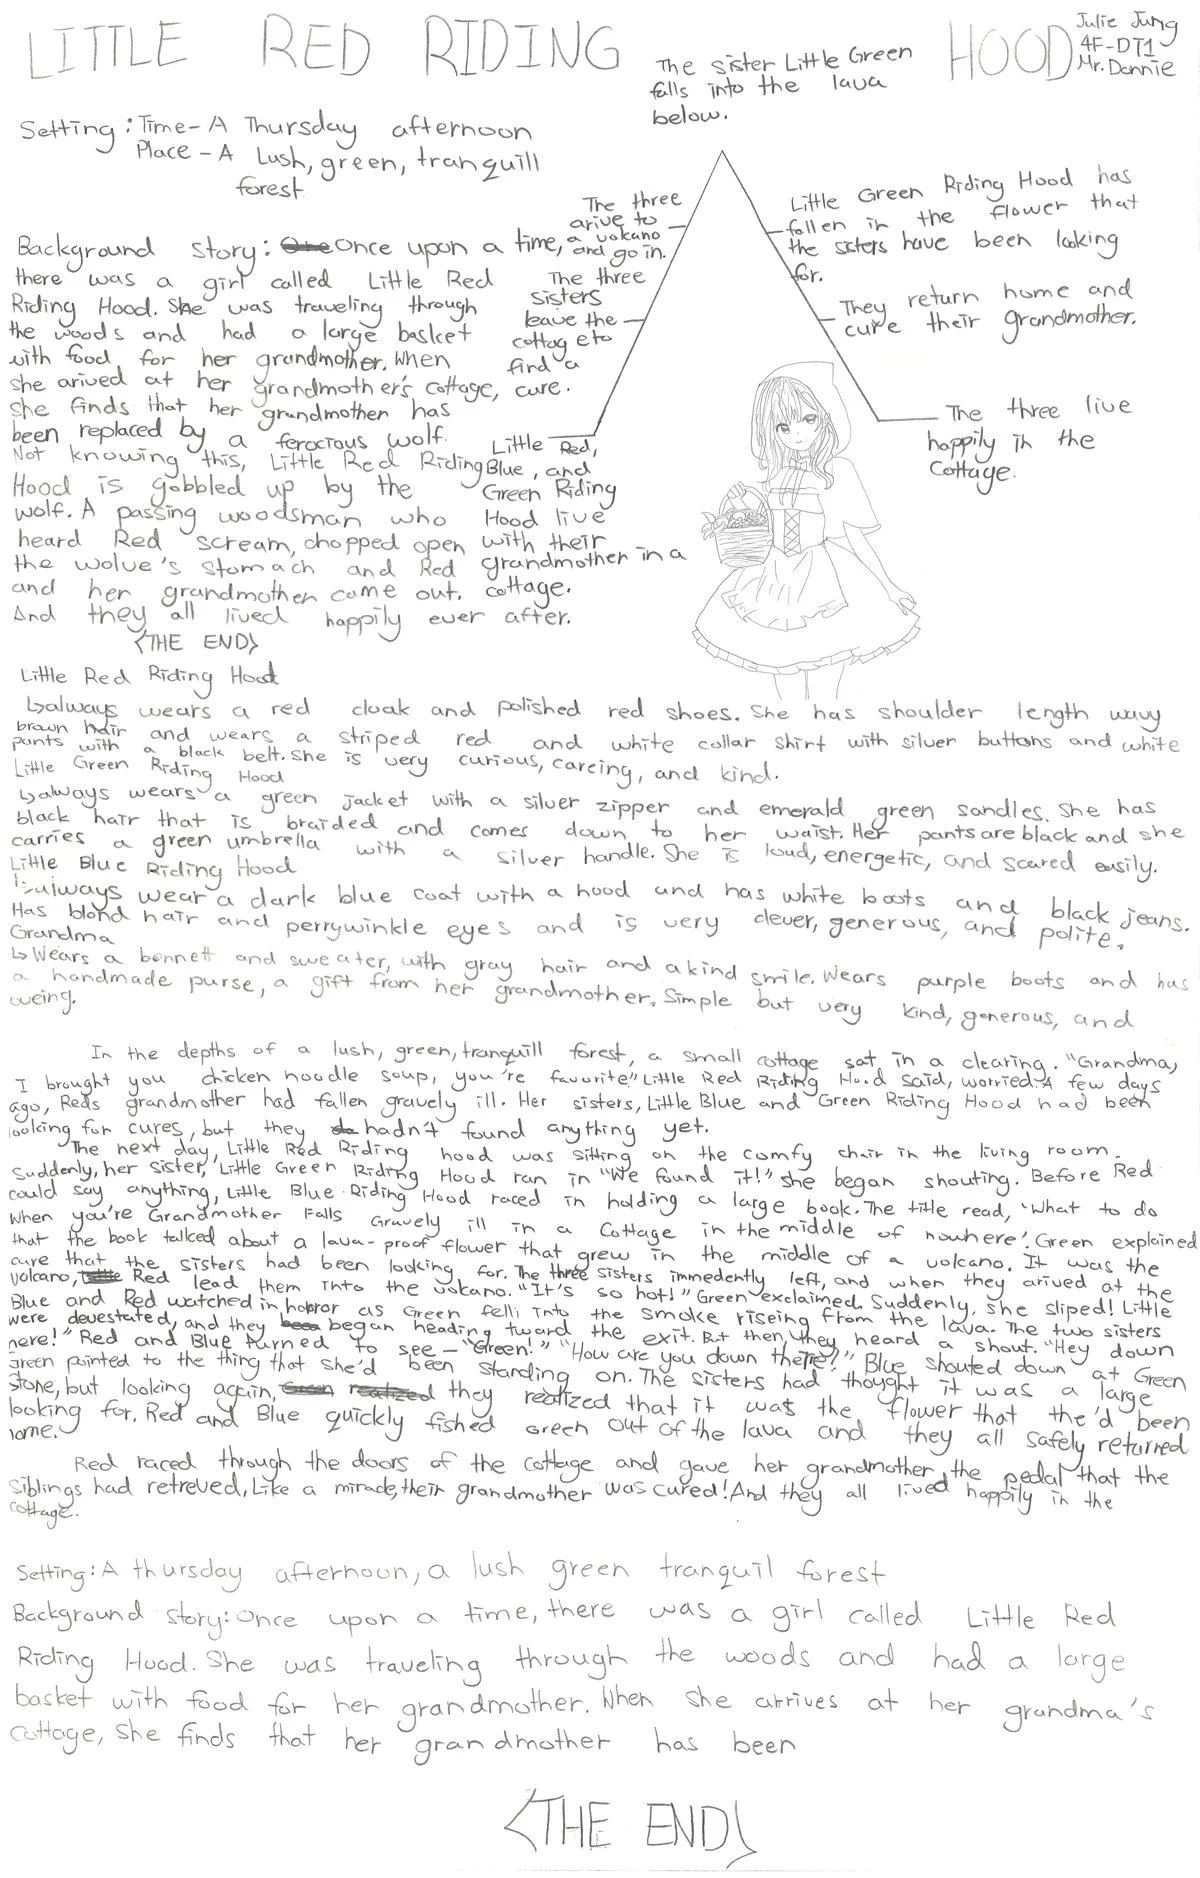 LITTLE RED RIDING HOOD
Julie Jung
4F-DT1
Mr. Donnie
Setting: Time- A Thursday afternoon
Place - A Lush, green, tranquill
forest
The sister Little Green
falls into the lava
below.
The three
arive to
a volcano
and go in.
The three
sisters
leave the
cottage to
find a
cure.
Little Red,
Blue, and
Green Riding
Hood live
with their
grandmother in a
cottage.
Little Green Riding Hood has
fallen in the flower that
the sisters have been looking
for.
They return home and
cure their grandmother.
The three live
happily in the
cottage.
Background story: Once upon a time,
there was a girl called Little Red
Riding Hood. She was traveling through
the woods and had a large basket
with food for her grandmother. When
she arived at her grandmother's cottage,
she finds that her grandmother has
been replaced by a ferocious wolf.
Not knowing this, Little Red Riding
Hood is gobbled up by the
wolf. A passing woodsman who
heard Red scream, chopped open
the wolve's stomach and Red
and her grandmother came out.
And they all lived happily ever after.
<THE END>
Little Red Riding Hood
↳always wears a red cloak and polished red shoes. She has shoulder length wavy
brown hair and wears a striped red and white collar shirt with silver buttons and white
pants with a black belt. She is very curious, careing, and kind.
Little Green Riding Hood
↳always wears a green jacket with a silver zipper and emerald green sandles. She has
black hair that is braided and comes down to her waist. Her pants are black and she
carries a green umbrella with a silver handle. She is loud, energetic, and scared easily.
Little Blue Riding Hood
↳always wear a dark blue coat with a hood and has white boots and black jeans.
Has blond hair and perrywinkle eyes and is very clever, generous, and polite.
Grandma
↳Wears a bonnett and sweater, with gray hair and a kind smile. Wears purple boots and has
a handmade purse, a gift from her grandmother. Simple but very kind, generous, and
oweing.
In the depths of a lush, green, tranquill forest, a small cottage sat in a clearing. "Grandma,
I brought you chicken noodle soup, you're favorite" Little Red Riding Hood said, worried. A few days
ago, Reds grandmother had fallen gravely ill. Her sisters, Little Blue and Green Riding Hood had been
looking for cures, but they hadn't found anything yet.
The next day, Little Red Riding hood was sitting on the comfy chair in the living room.
Suddenly, her sister, Little Green Riding Hood ran in "We found it!" she began shouting. Before Red
could say anything, Little Blue Riding Hood raced in holding a large book. The title read, 'What to do
When you're Grandmother Falls Gravely ill in a Cottage in the middle of nowhere'. Green explained
that the book talked about a lava-proof flower that grew in the middle of a volcano. It was the
cure that the sisters had been looking for. The three sisters immedently left, and when they arived at the
volcano, Red lead them into the volcano. "It's so hot!" Green exclaimed. Suddenly, she sliped! Little
Blue and Red watched in horror as Green fell into the smoke riseing from the lava. The two sisters
were devestated, and they began heading tward the exit. But then, they heard a shout. "Hey down
here!" Red and Blue turned to see - "Green!" "How are you down there?" Blue shouted down at Green
Green pointed to the thing that she'd been standing on. The sisters had thought it was a large
stone, but looking again, they realized that it was the flower that the'd been
looking for. Red and Blue quickly fished Green out of the lava and they all safely returned
home.
Red raced through the doors of the cottage and gave her grandmother the pedal that the
siblings had retreved. Like a miracle, their grandmother was cured! And they all lived happily in the
cottage.
Setting: A thursday afternoon, a lush green tranquil forest
Background story: Once upon a time, there was a girl called Little Red
Riding Hood. She was traveling through the woods and had a large
basket with food for her grandmother. When she arrives at her grandma's
cottage, she finds that her grandmother has been
<THE END>